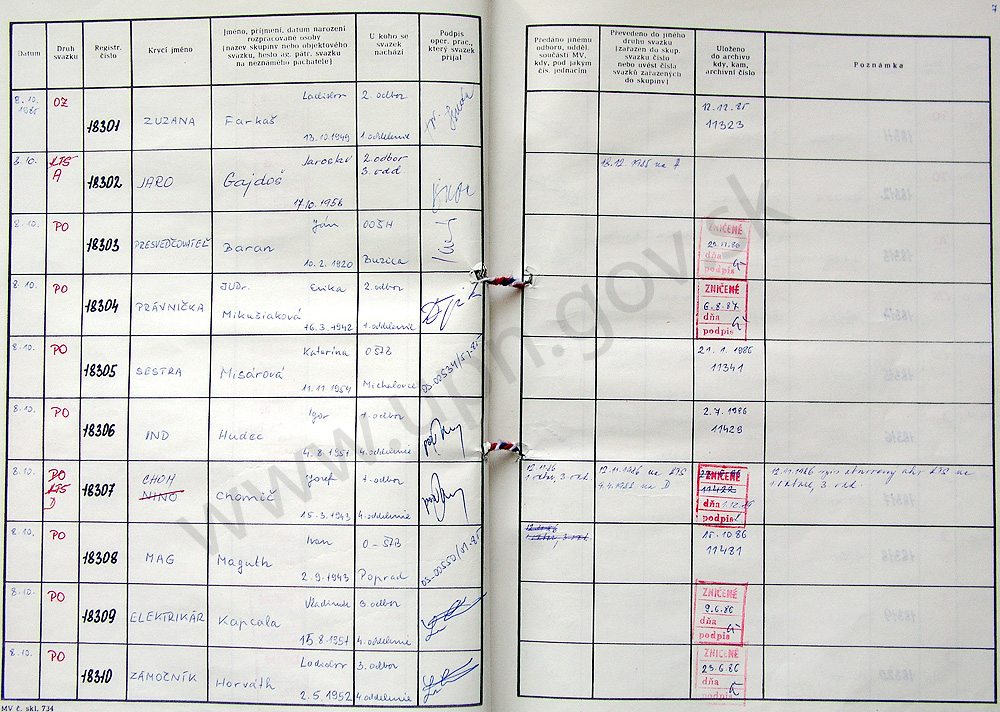 7
Datum
Druh svazku
Registr. číslo
Krycí jméno
Jméno, příjmení, datum narození
rozpracované osoby
(název skupiny nebo objektového
svazku, heslo ag. pátr. svazku
na neznámého pachatele)
U koho se
svazek
nachází
Podpis
oper. prac.,
který svazek
přijal
Předáno jinému
odboru, odděl.
součásti MV,
kdy, pod jakým
čís. jednacím
Převedeno do jiného
druhu svazku
(zařazen do skup.
svazku číslo
nebo uvést čísla
svazků zařazených
do skupiny)
Uloženo
do archivu
kdy, kam,
archivní číslo
Poznámka
8.10. 1985 OZ 18301 ZUZANA Ladislav 2. odbor
Farkaš
13.10.1949 1. oddelenie
12.12.85
11323
8.10. KTS A 18302 JARO Jaroslav 2. odbor
3. odd
Gajdoš
17.10.1956
18.12.1985 na A
8.10. PO 18303 PRESVEDČOVATEĽ Ján OOŠH
Baran
10.2.1920 Buzica
ZNIČENÉ
dňa
podpis
8.10. PO 18304 PRÁVNIČKA JUDr. Erika 2. odbor
Mikušiaková
16.3.1942 1. oddelenie
ZNIČENÉ
6.8.87
dňa
podpis
8.10. PO 18305 SESTRA Katarína OŠTB
Misárová
11.11.1954 Michalovce
21.1.1986
11341
8.10. PO 18306 IND Igor 1. odbor
Hudec
4.8.1951 4. oddelenie
2.7.1986
11429
8.10. PO KTS D 18307 CHOM Jozef 1. odbor
NINO
Chomič
15.3.1943 4. oddelenie
12.11.86
12.11.1986 na KTS
ZNIČENÉ
dňa
podpis
8.10. PO 18308 MAG Ivan O-ŠTB
Maguth
2.9.1943 Poprad
15.10.86
11481
8.10. PO 18309 ELEKTRIKÁR Vladimír 3. odbor
Kapcala
15.8.1957 4. oddelenie
ZNIČENÉ
9.6.86
dňa
podpis
8.10. PO 18310 ZÁMOČNÍK Ladislav 3. odbor
Horváth
2.5.1952 4. oddelenie
ZNIČENÉ
23.6.86
dňa
podpis
MV č. skl. 734
www.upn.gov.sk